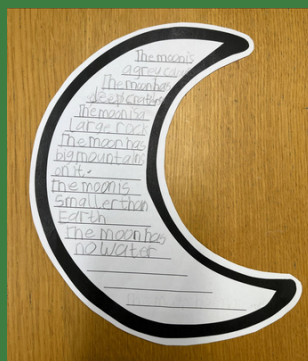 The moon is
a grey
The moon has
deep craters
The moon is a
large rock
The moon has
big mountains
on it.
The moon is
smaller than
Earth
The moon has
no water